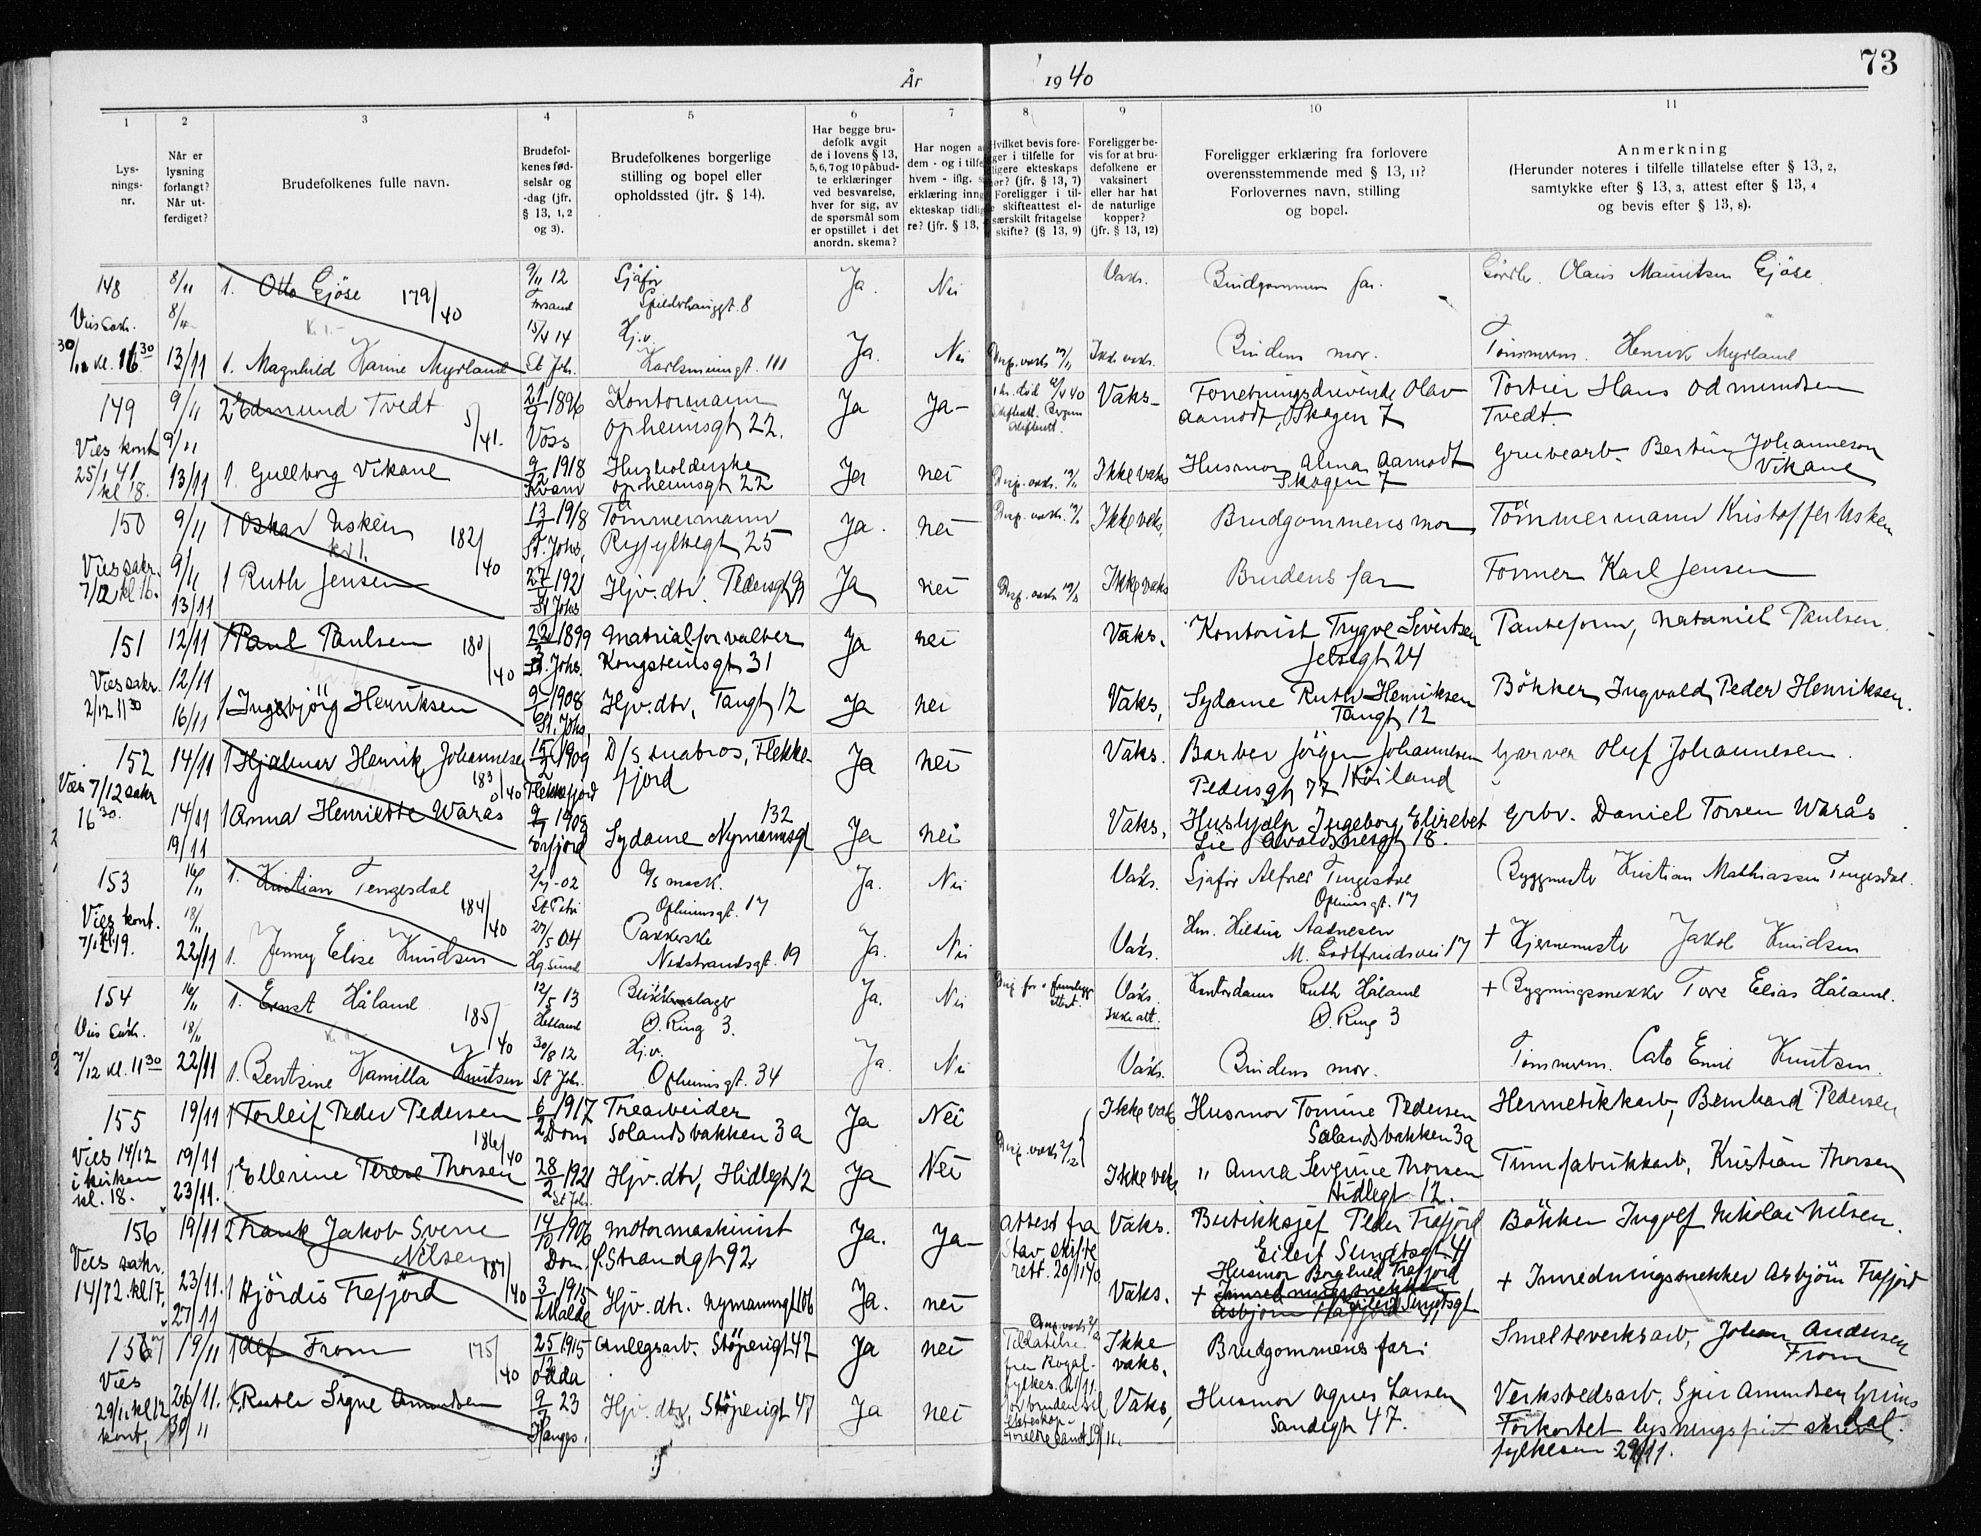 År 1940
73
1 2 3 4 5 6 7 8 9 10 11
Lys-
nings-
nr.
Når er
lysning
forlangt?
Når ut-
ferdiget?
Brudefolkenes fulle navn.
Brudefol-
kenes fød-
selsår og
-dag (jfr.
§ 13, 1, 2
og 3).
Brudefolkenes borgerlige
stilling og bopel eller
opholdssted (jfr. § 14).
Har begge bru-
defolk avgit
de i lovens § 13,
5, 6, 7 og 10 påbud-
te erklæringer
ved besvarelse,
hver for sig, av
de spørsmål som
er opstillet i det
anordn. skema?
Har nogen a
dem - og i tilfe
hvem - iflg. s
erklæring inng
ekteskap tidlig
re? (jfr. § 13,
Hvilket bevis fore-
ger i tilfelle for
ligere ekteskaps
hør? (jfr. § 13, 7)
Foreligger i til-
e skifteattest el-
særskilt fritagelse
skifte? (§ 13, 9)
Foreligger be-
vis for at bru-
defolkene er
vaksinert
eller har hat
de naturlige
kopper?
(jfr. § 13, 12)
Foreligger erklæring fra forlovere
overensstemmende med § 13, 11?
Forlovernes navn, stilling
og bopel.
Anmerkning
(Herunder noteres i tilfelle tillatelse efter § 13, 2,
samtykke efter § 13, 3, attest efter § 13, 4
og bevis efter § 13, 8).
148 8/11 1. Otto Gjöse 179/40 9/11 12 Sjåfør Ja. Nei Vaks. Brudgommens far. Olaus Mauritsen Gjöse
8/11 Forsand
30/11 kl. 16 30 13/11 1. Magnhild Karine Myrland 15/4 14 Hj.v. Ja. Nei Ikke vaks. Brudens mor. Tömmerm. Henrik Myrland
St Joh. Karlsminnegt. 111
149 9/11 2 Edmund Tvedt 5/41. 21 1896 Kontormann Ja Ja- Vaks- Forretningsdrivende Olav Portier Hans Odmundsen
Voss Opheimsgt 22. Aamodt, Skagen 7 Tvedt.
Vies kont 9/11
25/1 41 kl 18. 13/11 1. Gullborg Vikane 9/2 1918 Husholderske Ja nei Ikke vaks Husmor Alma Aamodt Gruvearb. Bertin Johanneson
Kvam Opheimsgt 22 Skagen 7 Vikane
150 9/11 1 Oskar Usken 182/40 13 1918 Tömmermann Ja. nei Ikke vaks, Brudgommens mor Tömmermann Kristoffer Usken
St. Johs, Ryfylkegt 25
Vies sakr. 9/11
7/12 kl 16. 13/11 1 Ruth Jensen 27 1921 Hjv. dtr. Pedersgt Ja nei Ikke vaks Brudens far Former Karl Jensen
St Johs
151 12/11 1 Paul Paulsen 180/40 22 1899 Matrialforvalter Ja nei Vaks. Kontorist Trygve Sivertsen Panteform, Nataniel Paulsen.
St. Johs. Kongsteinsgt 31 Jelsagt 24
Vies sakr. 12/11
2/12 11 30 16/11 1 Ingebjörg Henriksen 9 1908 Hjv. dtr, Tangt 12 Ja nei Vaks, Sydame Ruth Henriksen Bökker Ingvald Peder Henriksen.
St. Johs, Tangt 12
152 14/11 1 Hjalmar Henrik Johannesen 183/40 15/2 1909 D/S Inabros, Flekke- Ja nei Vaks. Barber Jörgen Johannesen Garver Oluf Johannesen.
Flekkefjord fjord Pedersgt 77 Höiland
Vies 7/12 sakr
16 30. 14/11 1 Anna Henriette Warås 9 1908 132 Ja nei Vaks, Hushjelp Ingeborg Elisebet Grbr. Daniel Torsen Warås
19/11 Sydame Nymannsgt Lie Avaldsnesgt 18.
153 16/11 1. Kristian Tengesdal 184/40 2/7-02 D/S mask. Ja. Nei Vaks. Sjåför Alfred Tengesdal Byggmester Kristian Mathiassen Tengesdal.
St Petri Opheimsgt. 17 Opheimsgt. 17
Vies kont. 18/11
7/12 kl 19. 22/11 1. Jenny Elise Knudsen 27/5 04 Pakkerske Ja. Nei Vaks. Hm. Hilda Aadnesen + Hjermemester Jakob Knudsen
Hg.sund Nedstrandsgt. 19 M. Godtfredsvei 17
154 16/11 1. Ernst Håland 185/40 12/5 13 Blikkenslager Ja. Nei Vaks. Kontordame Ruth Håland + Bygningssnekker Tore Elias Håland.
Hetland Ø. Ring 3. Ikke att. Ø. Ring 3
Vies sakr. 18/11
7/12 kl. 11 30 22/11 1. Bentsine Kamilla Knutsen 30/8 12 Hj.v. Ja. Nei Vaks. Brudens mor. Tömmerm. Cato Emil Knutsen.
St Joh. Opheimsgt. 34
155 19/11 1 Torleif Peder Pedersen 186/40 6/2 1917 Trearbeider Ja Nei Ikke vaks Husmor Tomine Pedersen Hermetikkarb, Bernhard Pedersen
Dom Solandsbakken 3a Solandsbakken 3a
Vies 14/12 19/11
i kirken kl. 18. 23/11. 1 Ellerine Terese Thorsen 28/2 1921 Hjv. dtr, Hidlegt 12 Ja Nei Ikke vaks " Anna Severine Thorsen Tinnfabrikkarb, Kristian Thorsen
St Joh. Hidlegt 12.
156 19/11 2 Frank Jakob Sverre 14/10 1906 Motormaskinist Ja. Ja- Attest fra Vaks. Butikksjef Peder Frafjord Bökker Ingolf Nikolai Nilsen.
Nilsen 187/40 Dom. Strandgt 92. Stav skifte Eilert Sundtsgt 41
rett. 20/11 40
Vies sakr. 23/11.
14/12. kl 17. 27/11 1 Hjördis Frafjord 3 1915 Hjv. dtr. Nymannsgt 106 Ja. nei Vaks. Husmor Borghild Frafjord + Innredningssnekker Asbjörn Frafjord
157 19/11 1 Alf From 175/40 25/12 1915 Anlegsarb. Stöperigt 47 Ja nei Tillatelse Ikke Brudgommens far: Smelteverksarb, Johan Andersen
Odda fra Rogal- vaks, From
fylkes. 21/11.
Vies 26/11.
29/11 kl 12 kont, 1. Ruth Signe Amundsen 9 23 Hjv. dtr, Stöperigt 47 Ja nei for bruden til Vaks, Husmor Agnes Larsen Verkstedsarb. Amundsen Grims
Hauges. ekteskap. Sandegt 47. Forkortet lysningsfrist
Foreldre samt. 19/11. fylkesm. 29/11.